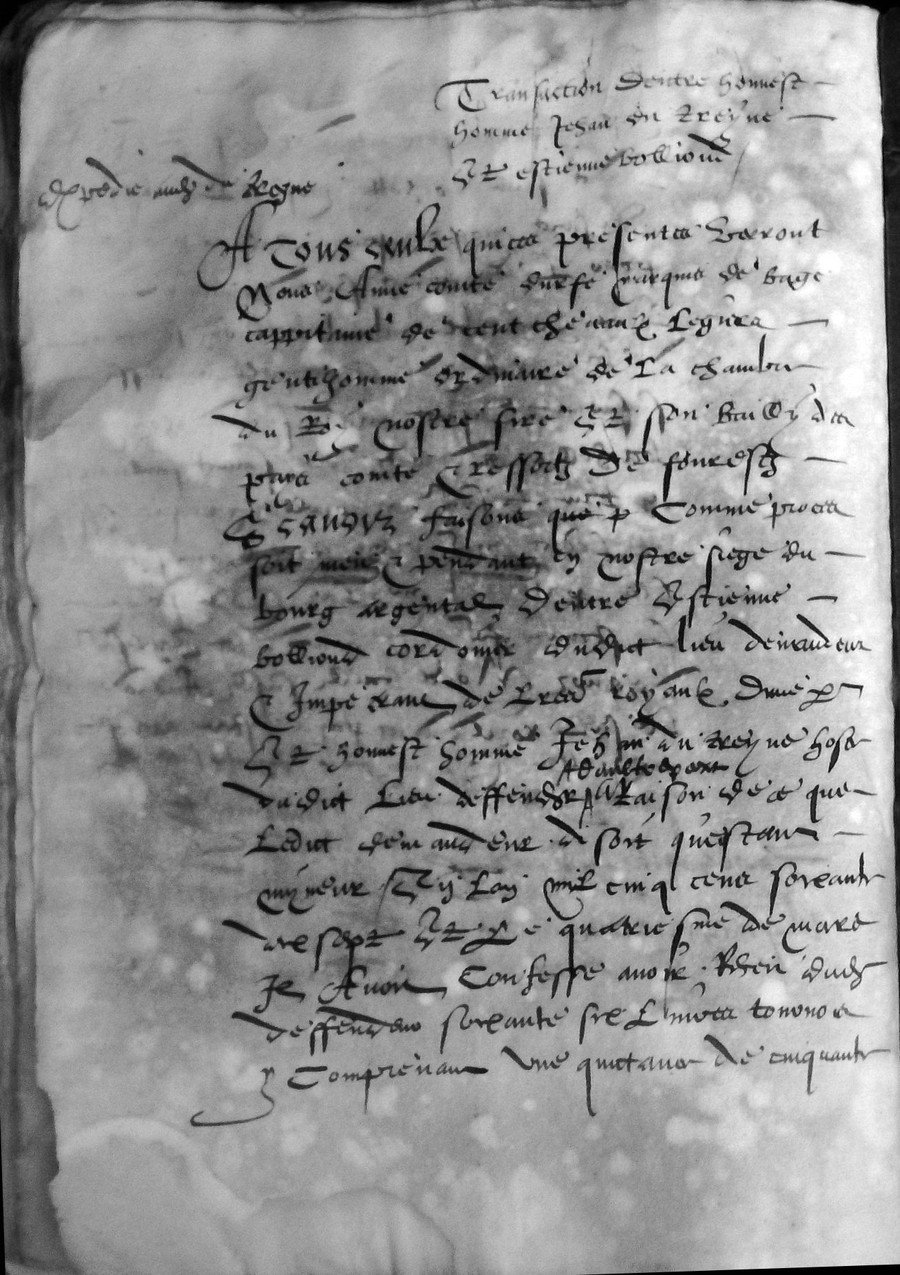 Transaction dentre honneste
homme Jehan du Treyne
Et estienne bolliond
Expedie aud du Treyne
A Tous ceulx qui ces presentes verront
Nous Anne conte durfe marquis de bage
cappitaine de cent chevaulx legiers
gentilhomme ordinaire de La chambre
du Roy nostre sire Et son bailly des
pais conte & ressortz De fourestz
Scavoir faisons que Comme proces
soit meu & pendant en nostre siege du
bourg argental Dentre Estienne
bolliond cordonier dudict lieu demandeur
& Impetrant de lres royaulx dune pt
Et honnest homme Jehan du treyne hoste
dudict Lieu deffendeur daultre part
A Raison de ce que
Ledict demandeur disoit questant
myneur En Lan mil cinq cens soixante
dix sept Et Le quatriesme de mars
Il Avoit Confesse avoir Receu dud
deffendeur soixante six Livres tournois
y Comprenant une quictance de cinquante